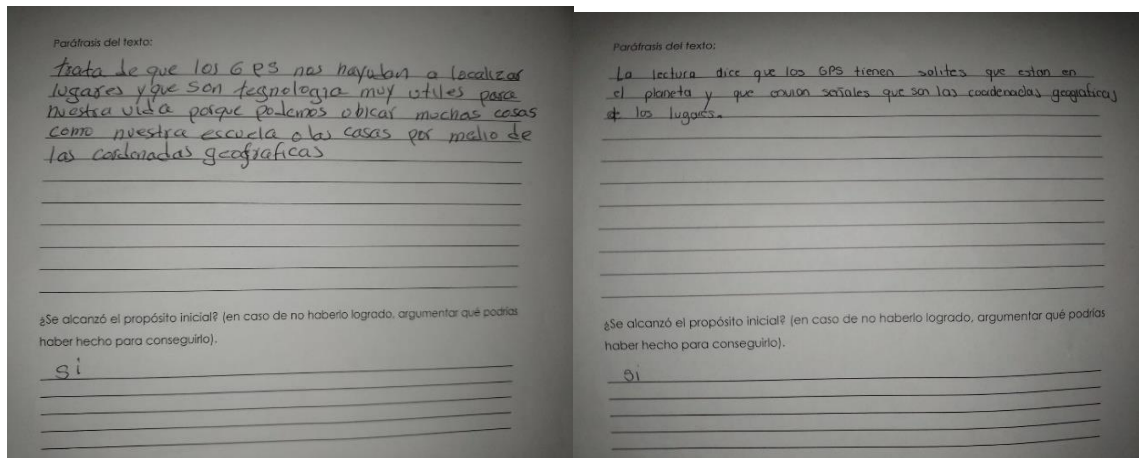 Paráfrasis del texto:
trata de que los GPS nos hayudan a localizar
lugares y que son tegnologia muy utiles para
nuestra vida porque podemos obicar muchas cosas
como nuestra escuela o las casas por medio de
las cordenadas geograficas
¿Se alcanzó el propósito inicial? (en caso de no haberlo logrado, argumentar qué podrías
haber hecho para conseguirlo).
si
Paráfrasis del texto:
La lectura dice que los GPS tienen solites que estan en
el planeta y que envian señales que son las coordenadas geograficas
los lugares.
¿Se alcanzó el propósito inicial? (en caso de no haberlo logrado, argumentar qué podrías
haber hecho para conseguirlo).
si